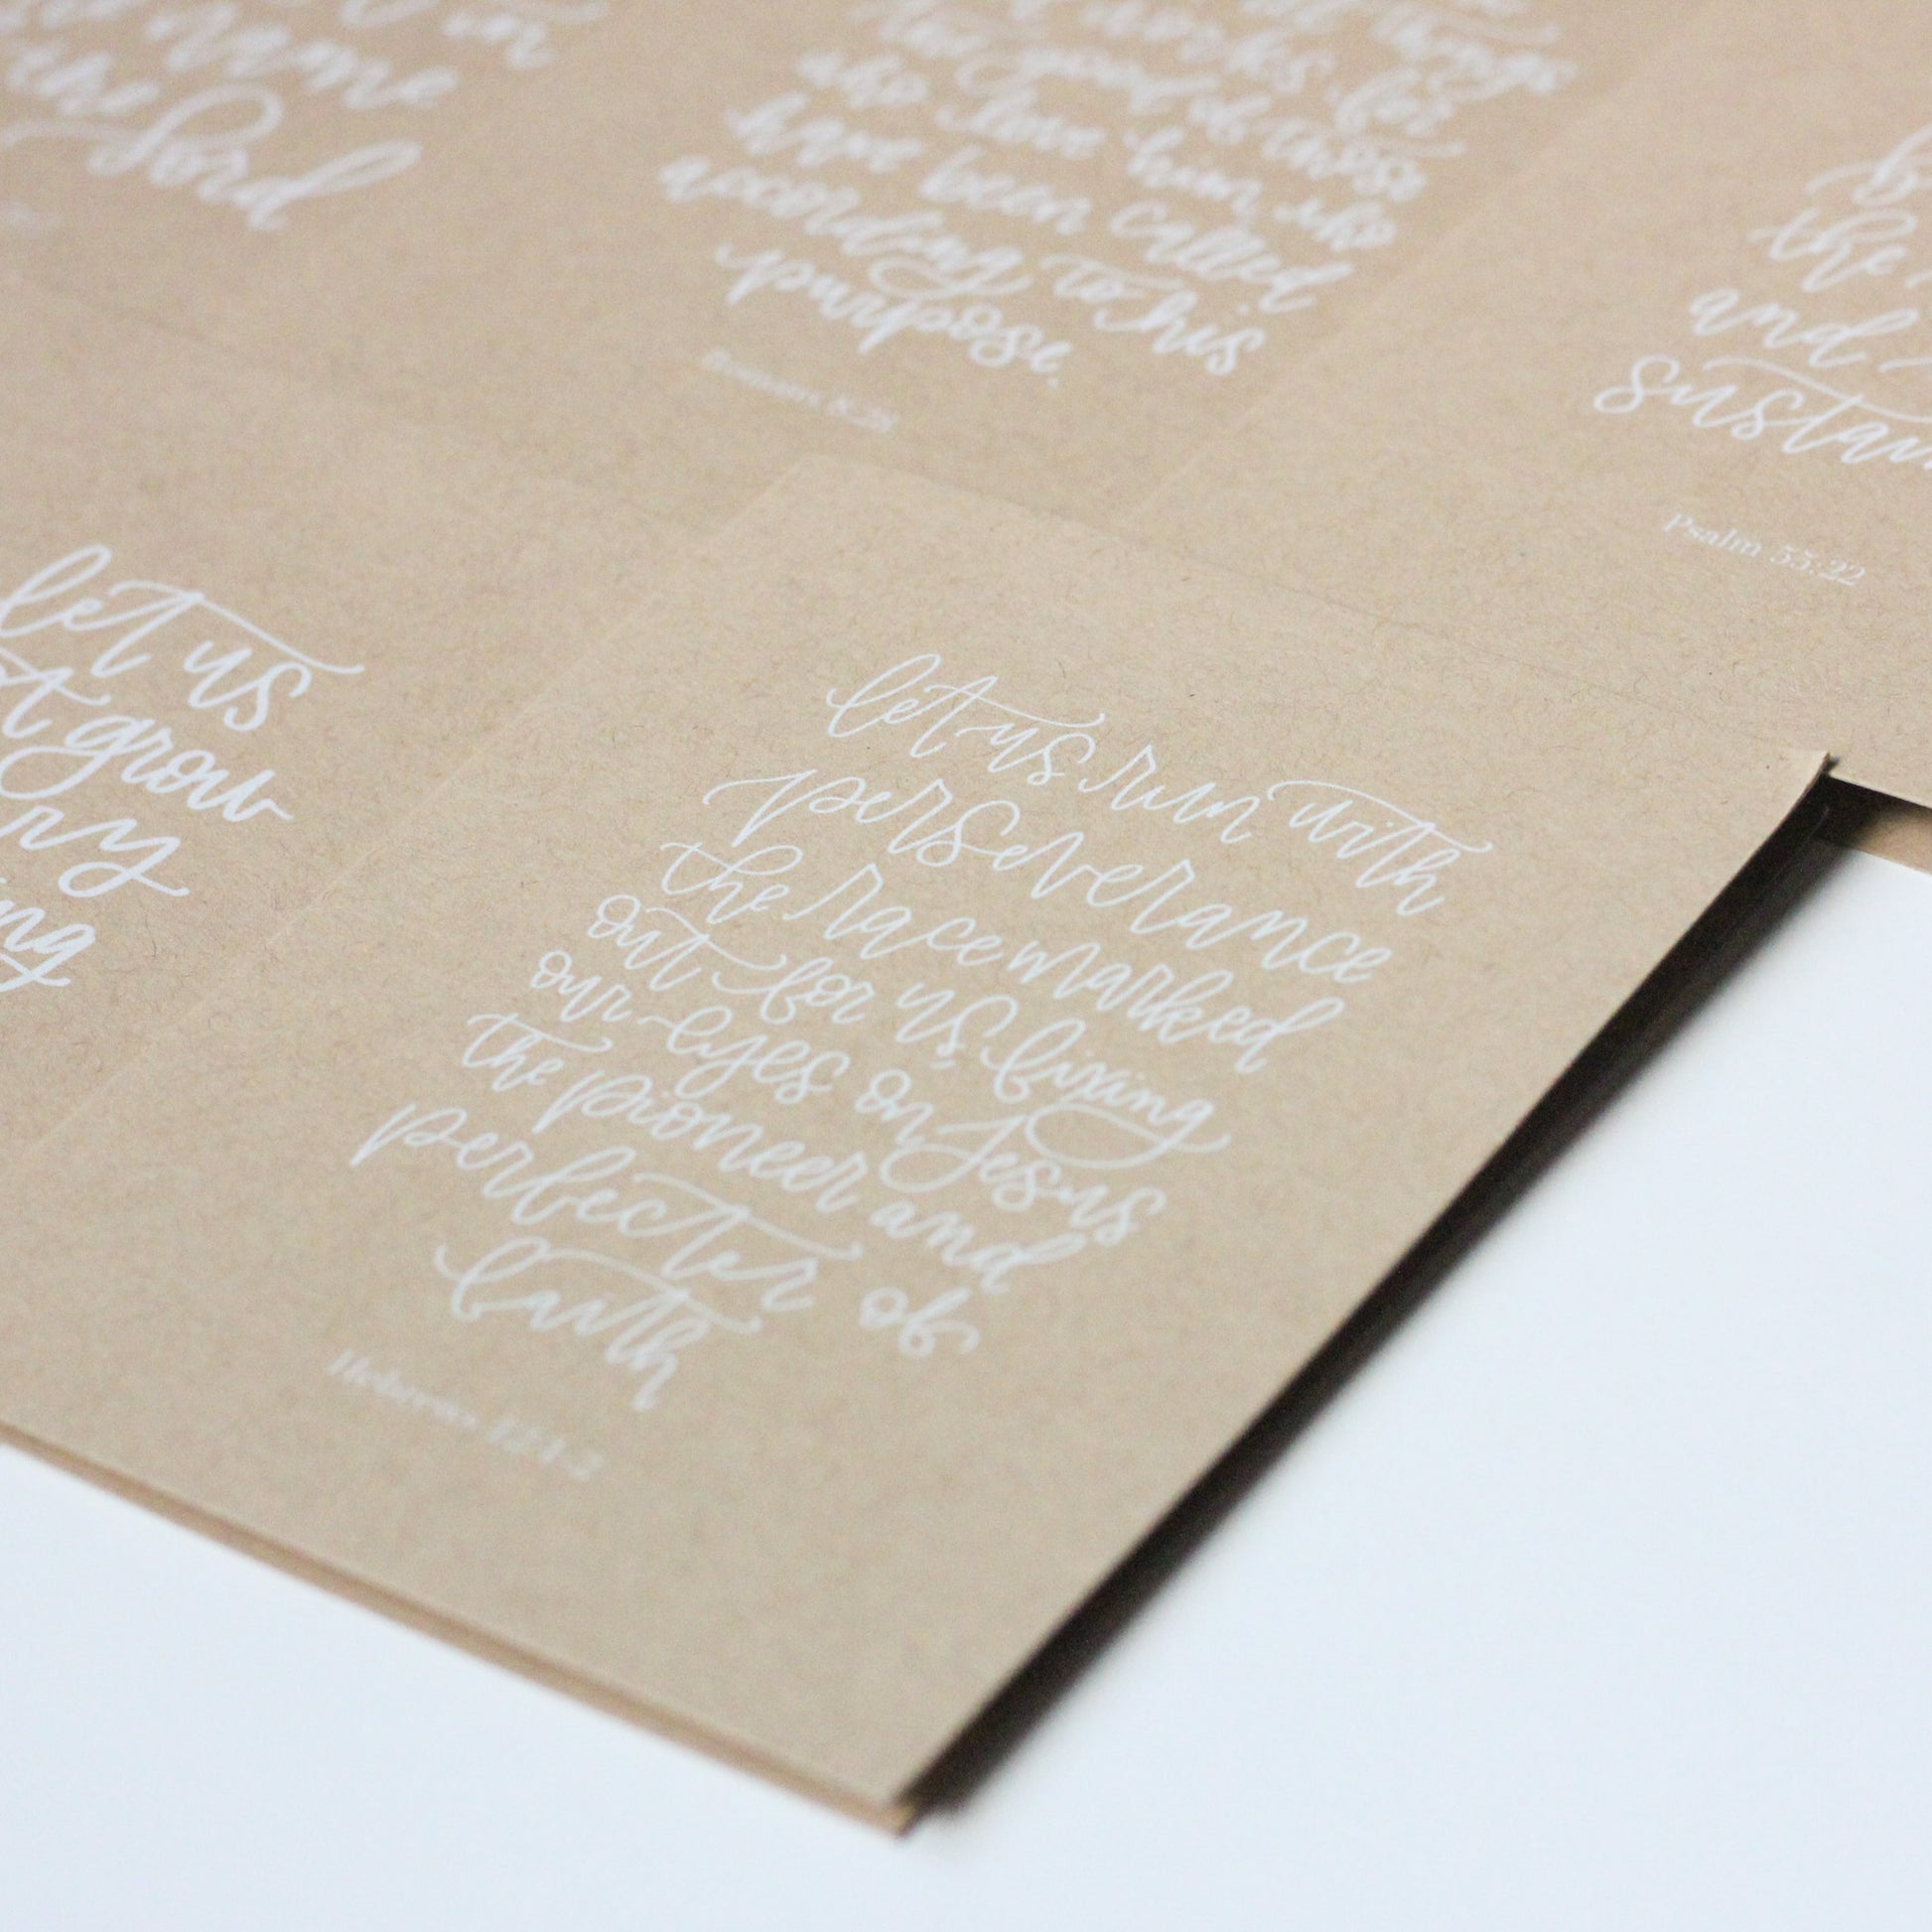 name
the Lord
things
works for
the good of those
who love him, who
have been called
according to his
purpose.
Romans 8:28
the
and
Psalm 55:22
let us
grow
let us run with
perseverance
the race marked
out for us, fixing
our eyes on Jesus
the pioneer and
perfecter of
faith
Hebrews 12:1-2